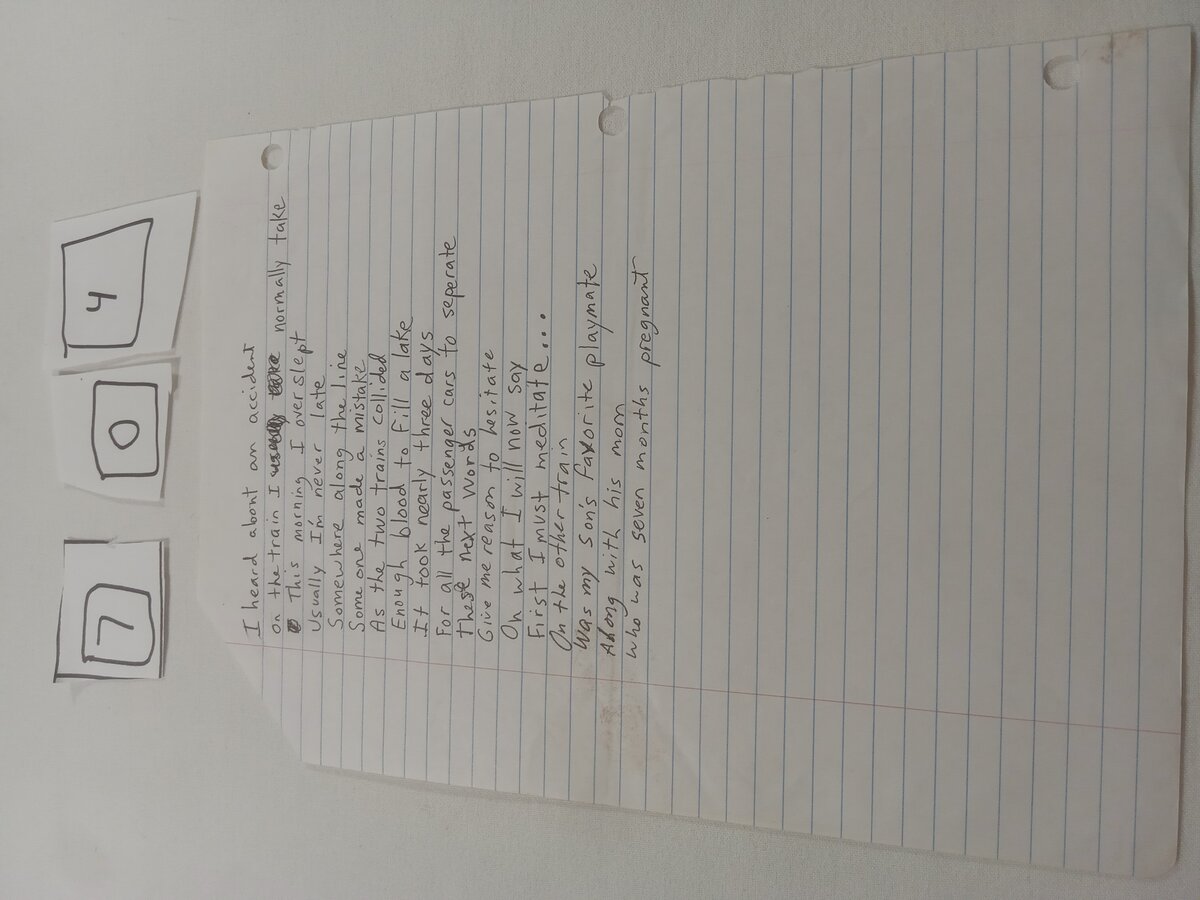 7 0 4
I heard about an accident
on the train I normally take
This morning I overslept
Usually I'm never late
Somewhere along the line
Some one made a mistake
As the two trains collided
Enough blood to fill a lake
It took nearly three days
For all the passenger cars to seperate
These next words
Give me reason to hesitate
On what I will now say
First I must meditate...
On the other train
Was my son's favorite playmate
Along with his mom
who was seven months pregnant